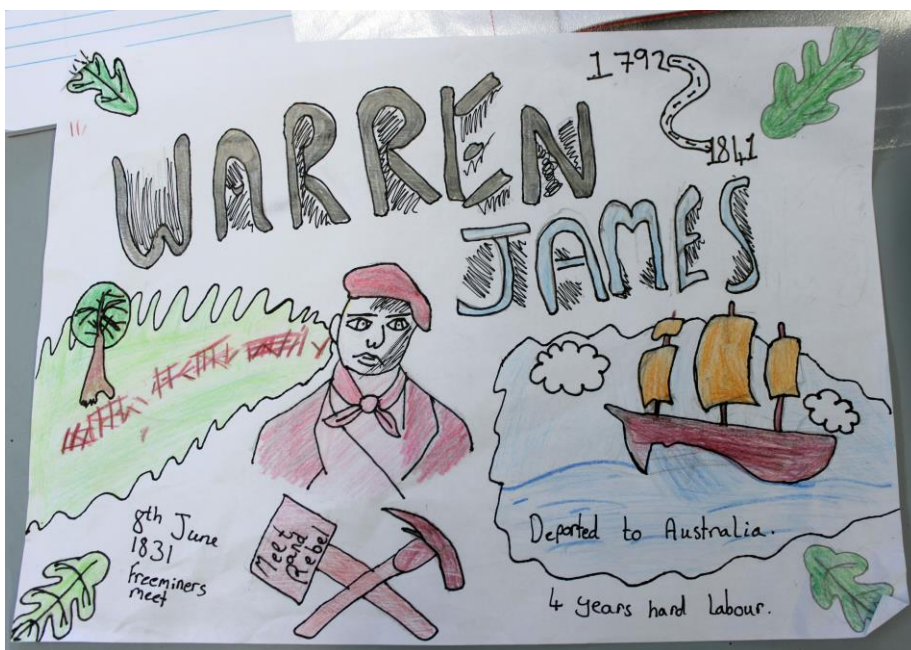 1792
1841
WARREN
JAMES
8th June
1831
Freeminers
meet
Meet
and
Rebel
Deported to Australia.
4 years hard labour.